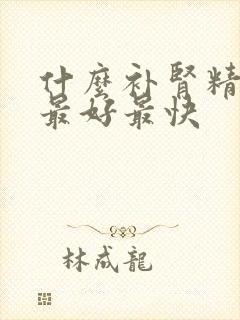 什麼补腎精
最好最快
林成龍